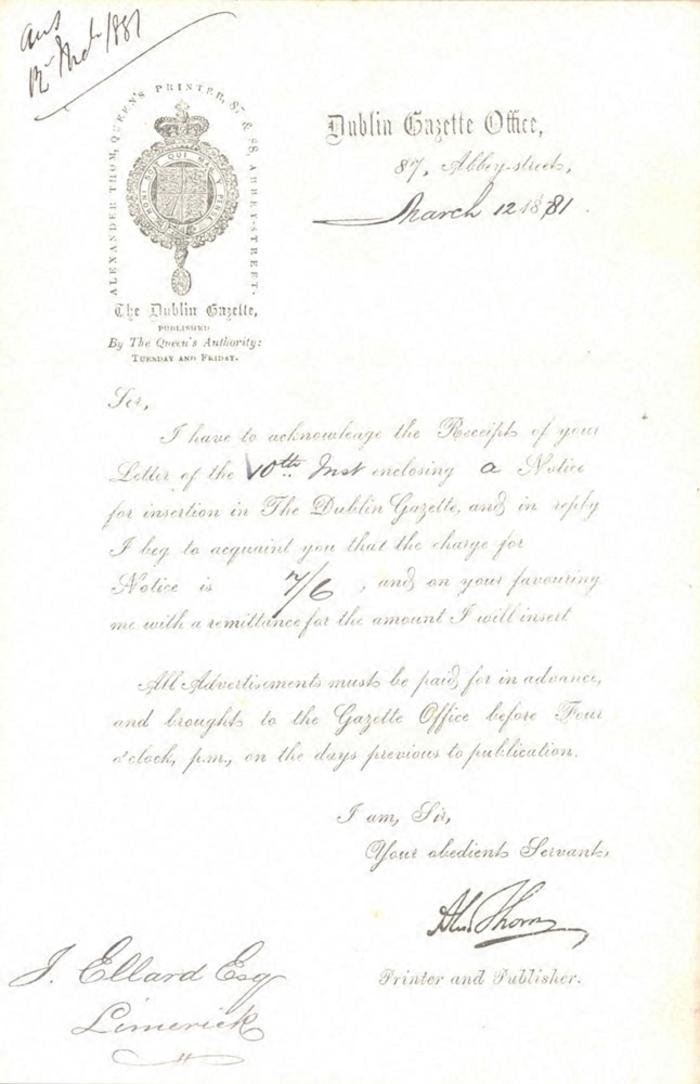 ans
12 Mch 1881
ALEXANDER THOM, QUEEN'S PRINTER, 87 & 88, ABBEY-STREET.
HONI SOIT QUI MAL Y PENSE
The Dublin Gazette,
PUBLISHED
By The Queen's Authority:
TUESDAY AND FRIDAY.
Dublin Gazette Office,
87, Abbey-street,
March 12 1881.
Sir,
I have to acknowledge the Receipt of your
Letter of the 10th Inst enclosing a Notice
for insertion in The Dublin Gazette, and in reply
I beg to acquaint you that the charge for
Notice is 7/6, and on your favouring
me with a remittance for the amount I will insert
All Advertisements must be paid for in advance,
and brought to the Gazette Office before Four
o'clock, p.m., on the days previous to publication.
I am, Sir,
Your obedient Servant,
Alex Thom
Printer and Publisher.
J. Ellard Esq
Limerick